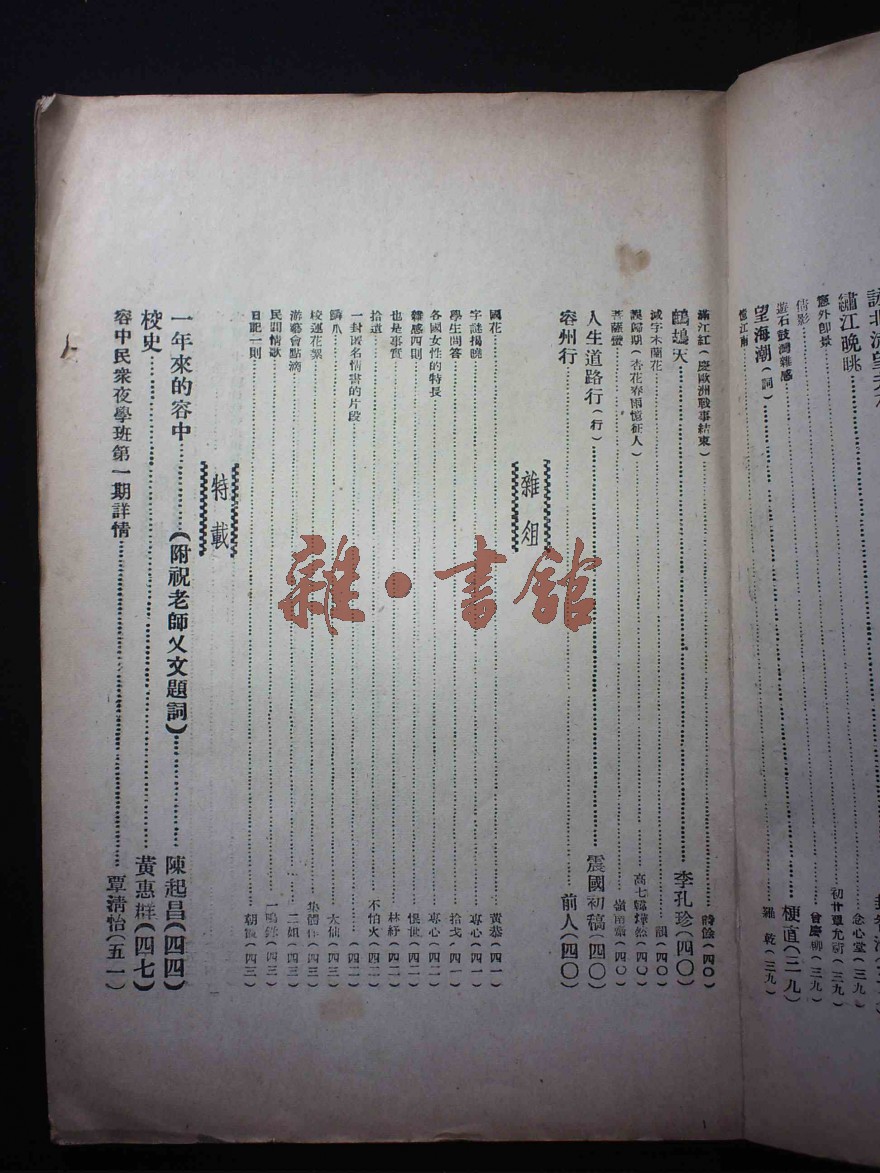 北流
繡江晚眺
窗外卽景 念心堂（三九）
倩影 初廿覃允新（三九）
遊石鼓灣雜感 曾慶柳（三九）
望海潮（詞） 梗直（三九）
憶江南 乾（三九）
滿江紅（慶歐洲戰事結束） 餘（四〇）
鷓鴣天 李孔珍（四〇）
減字木蘭花 韻（四〇）
誤歸期（杏花春雨憶征人） 高七（四〇）
菩薩蠻 （四〇）
人生道路行（行） 震國初稿（四〇）
容州行 前人（四〇）
雜俎
國花 黃恭（四一）
字謎揭曉 專心（四一）
學生問答 拾戈（四一）
各國女性的特長 專心（四二）
雜感四則 恨世（四二）
也是事實 林紓（四二）
拾遺 不怕火（四二）
一封匿名情書的片段 （四二）
鱗爪 大仙（四三）
校運花絮 集體作（四三）
游藝會點滴 二姐（四三）
民間情歌 一鳴（四三）
日記一則 朝（四三）
特載
一年來的容中（附祝老師乂文題詞） 陳起昌（四四）
校史 黃惠群（四七）
容中民衆夜學班第一期詳情 覃清怡（五一）
雜·書館